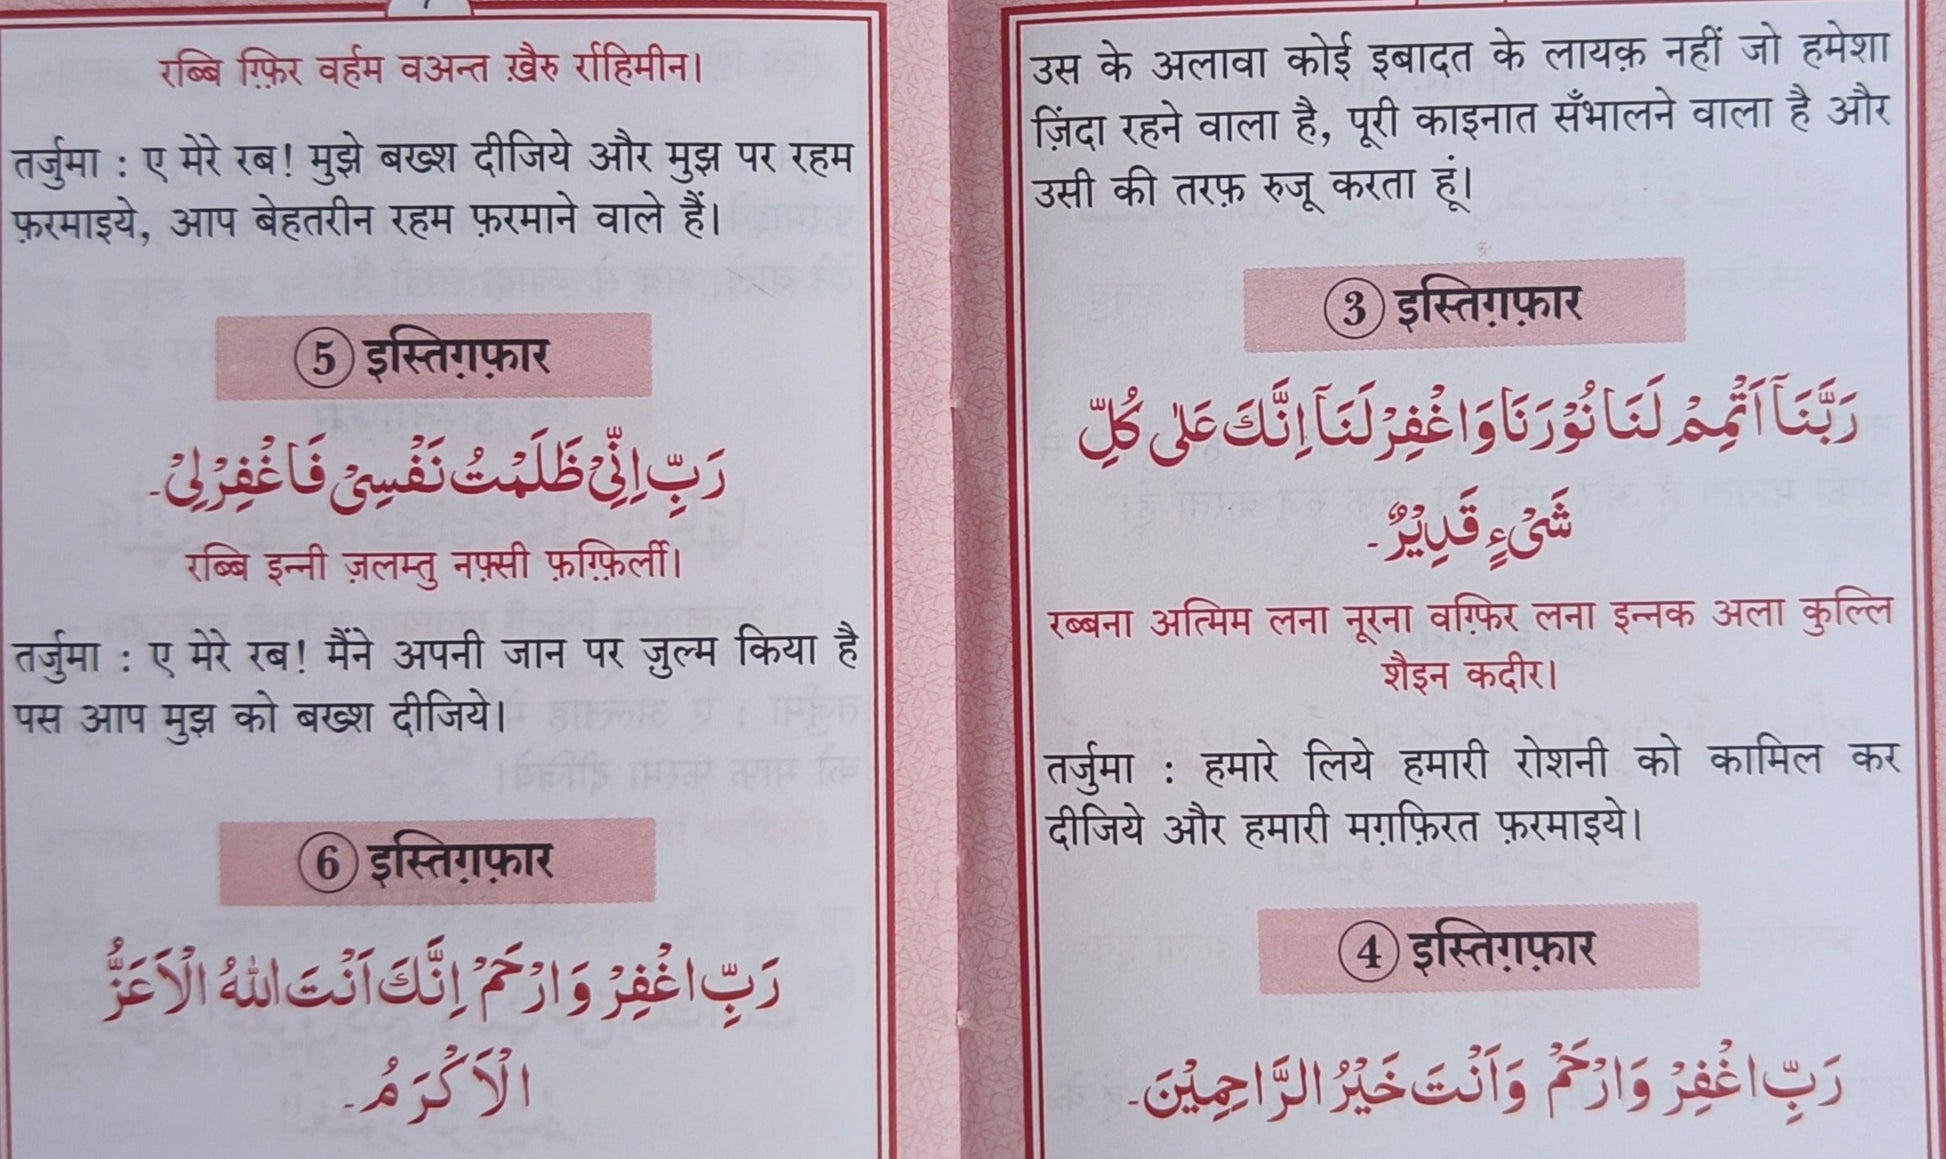 उस के अलावा कोई इबादत के लायक़ नहीं जो हमेशा
ज़िंदा रहने वाला है, पूरी काइनात सँभालने वाला है और
उसी की तरफ़ रुजू करता हूं।
③ इस्तिग़फ़ार
رَبَّنَاۤ اَتْمِمْ لَنَا نُوْرَنَا وَاغْفِرْ لَنَاۤ اِنَّكَ عَلٰى كُلِّ
شَىْءٍ قَدِيْرٌ۔
रब्बना अत्मिम लना नूरना वग़्फ़िर लना इन्नक अला कुल्लि
शैइन कदीर।
तर्जुमा : हमारे लिये हमारी रोशनी को कामिल कर
दीजिये और हमारी मग़फ़िरत फ़रमाइये।
④ इस्तिग़फ़ार
رَبِّ اغْفِرْ وَارْحَمْ وَاَنْتَ خَيْرُ الرَّاحِمِيْنَ۔
रब्बि ग़्फ़िर वर्हम वअन्त ख़ैरु र्राहिमीन।
तर्जुमा : ए मेरे रब! मुझे बख्श दीजिये और मुझ पर रहम
फ़रमाइये, आप बेहतरीन रहम फ़रमाने वाले हैं।
⑤ इस्तिग़फ़ार
رَبِّ اِنِّىْ ظَلَمْتُ نَفْسِىْ فَاغْفِرْلِىْ۔
रब्बि इन्नी ज़लम्तु नफ़्सी फ़ग़्फ़िर्ली।
तर्जुमा : ए मेरे रब! मैंने अपनी जान पर ज़ुल्म किया है
पस आप मुझ को बख्श दीजिये।
⑥ इस्तिग़फ़ार
رَبِّ اغْفِرْ وَارْحَمْ اِنَّكَ اَنْتَ اللّٰهُ الْاَعَزُّ
الْاَكْرَمُ۔